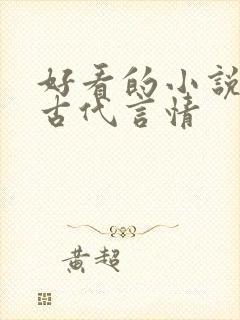 好看的小説
古代言情
黄超